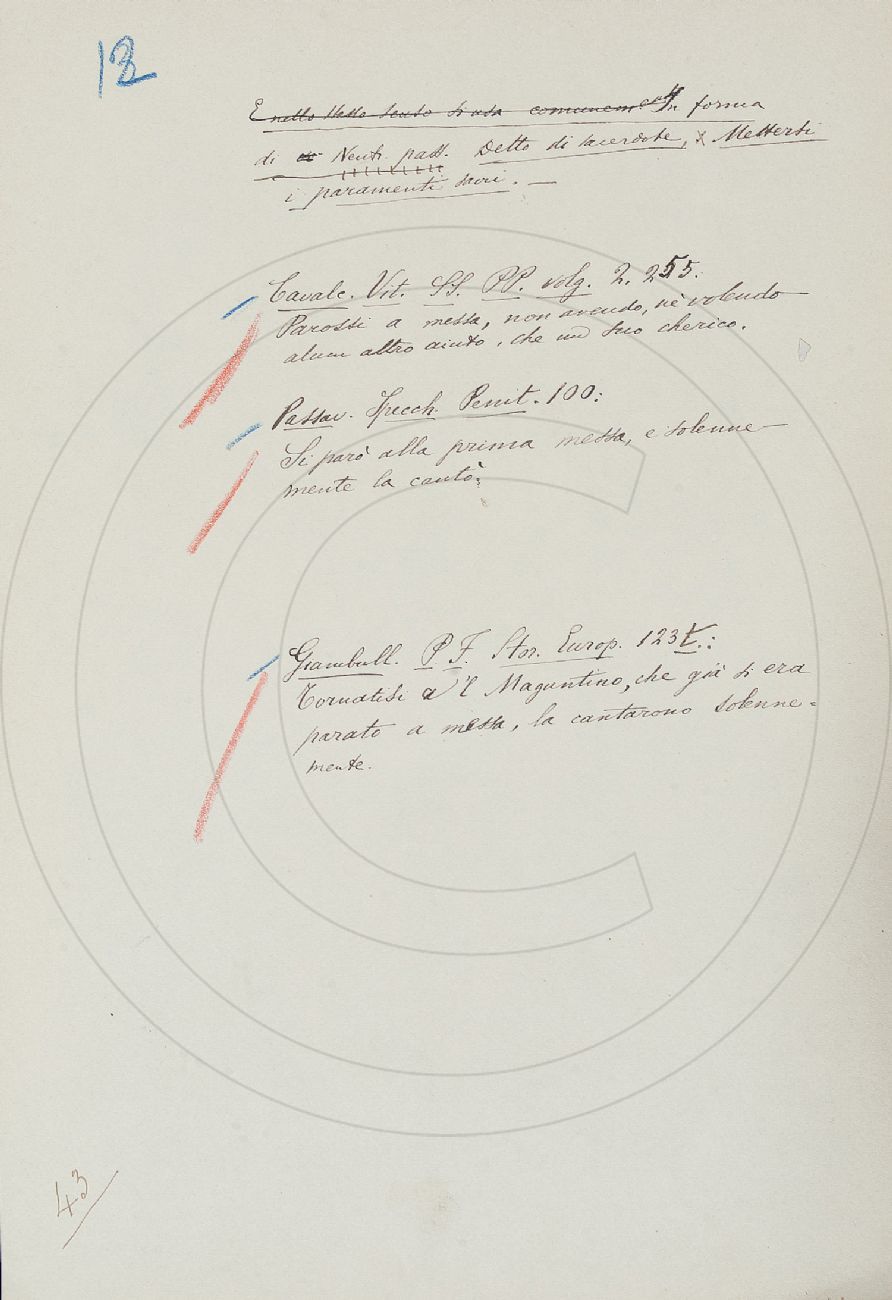 12
E nello stesso senso si usa comunemente In forma
di Neutr. pass. Detto di sacerdote, x Mettersi
i paramenti sacri. —
Cavalc. Vit. SS. PP. volg. 2. 255:
Parossi a messa, non avendo, nè volendo
alcun altro aiuto, che un suo cherico.
Passav. Specch. Penit. 100:
Si parò alla prima messa, e solenne-
mente la cantò.
Giambull. P. F. Stor. Europ. 123 t.:
Tornatisi a 'l Maguntino, che già si era
parato a messa, la cantarono solenne-
mente.
43